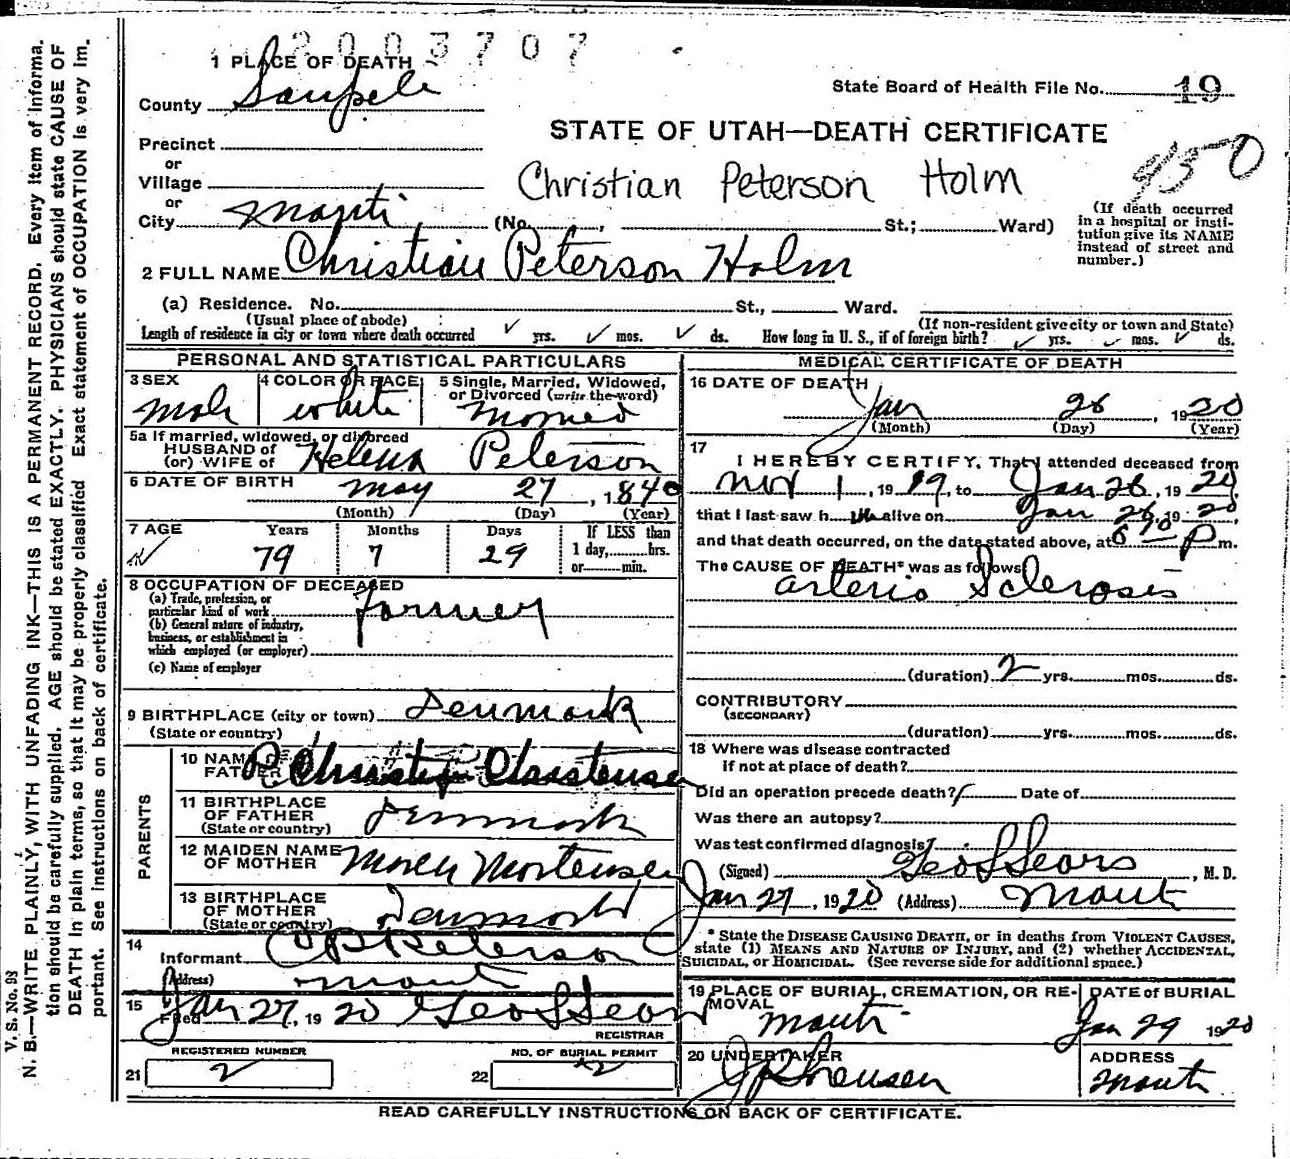 2003707
1 PLACE OF DEATH
State Board of Health File No. 19
County Sanpete
STATE OF UTAH—DEATH CERTIFICATE
Precinct
or
Village
Christian Peterson Holm
950
or
City Manti (No. , St.; Ward)
(If death occurred
in a hospital or insti-
tution give its NAME
instead of street and
number.)
2 FULL NAME Christian Peterson Holm
(a) Residence. No. St., Ward.
(Usual place of abode)
(If non-resident give city or town and State)
Length of residence in city or town where death occurred ✓ yrs. ✓ mos. ✓ ds. How long in U. S., if of foreign birth? ✓ yrs. ✓ mos. ✓ ds.
PERSONAL AND STATISTICAL PARTICULARS
3 SEX
4 COLOR OR RACE
5 Single, Married, Widowed,
or Divorced (write the word)
Male
White
5a If married, widowed, or divorced
HUSBAND of
(or) WIFE of
Helena Peterson
6 DATE OF BIRTH May 27, 1840
(Month) (Day) (Year)
7 AGE
Years Months Days
If LESS than
1 day, hrs.
or min.
79 7 29
8 OCCUPATION OF DECEASED
(a) Trade, profession, or
particular kind of work Farmer
(b) General nature of industry,
business, or establishment in
which employed (or employer)
(c) Name of employer
9 BIRTHPLACE (city or town) Denmark
(State or country)
PARENTS
10 NAME OF
FATHER P. Christensen
11 BIRTHPLACE
OF FATHER
(State or country)
Denmark
12 MAIDEN NAME
OF MOTHER
Mortensen
13 BIRTHPLACE
OF MOTHER
(State or country)
Denmark
14
Informant C P Peterson
(Address) Manti
15 Filed Jan 27, 1920 Geo L Sears
REGISTRAR
REGISTERED NUMBER
21 2
NO. OF BURIAL PERMIT
22 2
MEDICAL CERTIFICATE OF DEATH
16 DATE OF DEATH
Jan 26, 1920
(Month) (Day) (Year)
17
I HEREBY CERTIFY, That I attended deceased from
Nov 1, 1919, to Jan 26, 1920,
that I last saw him alive on Jan 26, 1920,
and that death occurred, on the date stated above, at 6 P m.
The CAUSE OF DEATH* was as follows:
Arterio Sclerosis
(duration) 2 yrs. mos. ds.
CONTRIBUTORY
(SECONDARY)
(duration) yrs. mos. ds.
18 Where was disease contracted
if not at place of death?
Did an operation precede death? Date of
Was there an autopsy?
Was test confirmed diagnosis?
(Signed) Geo L Sears, M. D.
Jan 27, 1920 (Address) Manti
* State the DISEASE CAUSING DEATH, or in deaths from VIOLENT CAUSES,
state (1) MEANS AND NATURE OF INJURY, and (2) whether ACCIDENTAL,
SUICIDAL, or HOMICIDAL. (See reverse side for additional space.)
19 PLACE OF BURIAL, CREMATION, OR RE-
MOVAL
Manti
DATE of BURIAL
Jan 29 1920
20 UNDERTAKER
J P Sorensen
ADDRESS
Manti
READ CAREFULLY INSTRUCTIONS ON BACK OF CERTIFICATE.
V. S. No. 98
N. B.—WRITE PLAINLY, WITH UNFADING INK—THIS IS A PERMANENT RECORD. Every item of informa-
tion should be carefully supplied. AGE should be stated EXACTLY. PHYSICIANS should state CAUSE OF
DEATH in plain terms, so that it may be properly classified. Exact statement of OCCUPATION is very im-
portant. See instructions on back of certificate.